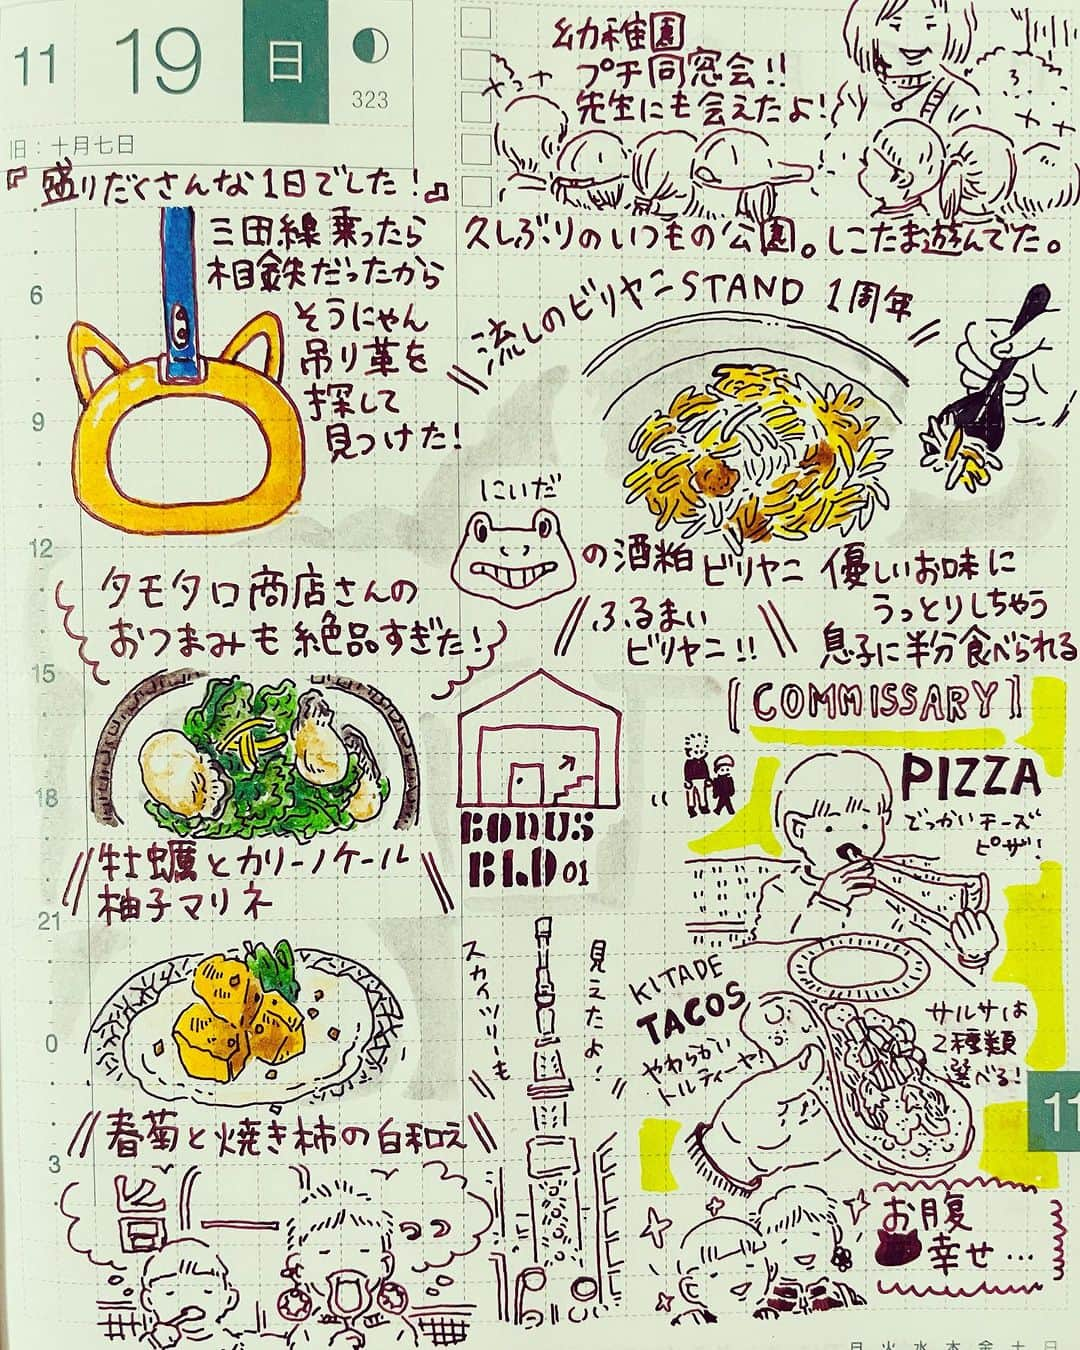 11 19 日
323
旧：十月七日
『盛りだくさんな1日でした！』
幼稚園
プチ同窓会!!
先生にも会えたよ！
久しぶりのいつもの公園。しこたま遊んでた。
三田線乗ったら
相鉄だったから
そうにゃん
吊り革を
探して
見つけた！
流しのビリヤニSTAND 1周年
にいだ
の酒粕ビリヤニ
ふるまい
ビリヤニ!!
優しいお味に
うっとりしちゃう
息子に半分食べられる
タモタロ商店さんの
おつまみも絶品すぎた！
牡蠣とカリーノケール
柚子マリネ
春菊と焼き柿の白和え
BONUS
BLD 01
スカイツリーも
見えたよ！
[COMMISSARY]
PIZZA
でっかいチーズ
ピザ！
KITADE
TACOS
やわらかい
トルティーヤ！
サルサは
2種類
選べる！
お腹
幸せ…
6
9
12
15
18
21
0
3
11
月 火 水 木 金 土 日